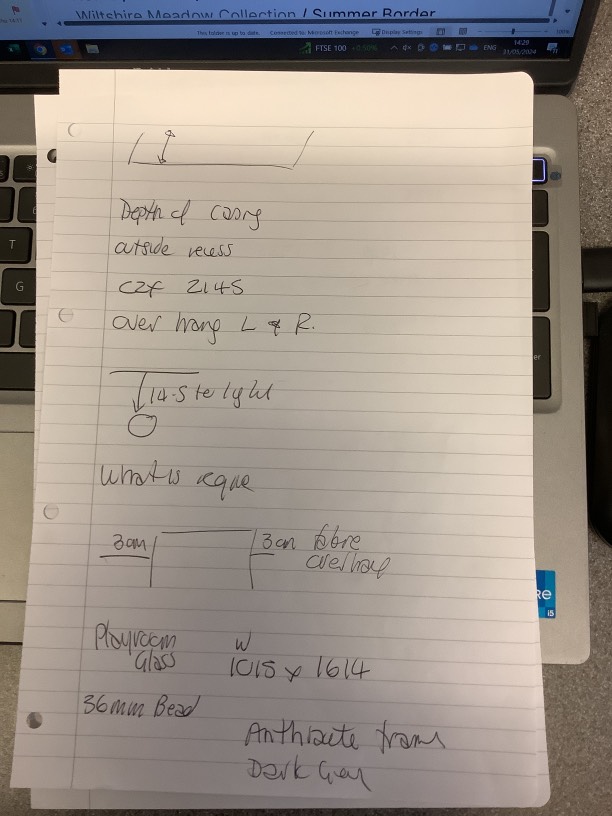 Wiltshire Meadow Collection / Summer Border
This folder is up to date. Connected to: Microsoft Exchange Display Settings 100%
FTSE 100 +0.50% ENG 14:29
31/05/2024
Depth of
outside recess
2145
over hang L & R.
14.5 to light
What is
3cm 3cm
overhang
Playroom W
Glass 1015 x 1614
36mm Bead
Anthracite frame
Dark Grey
T
G
i5